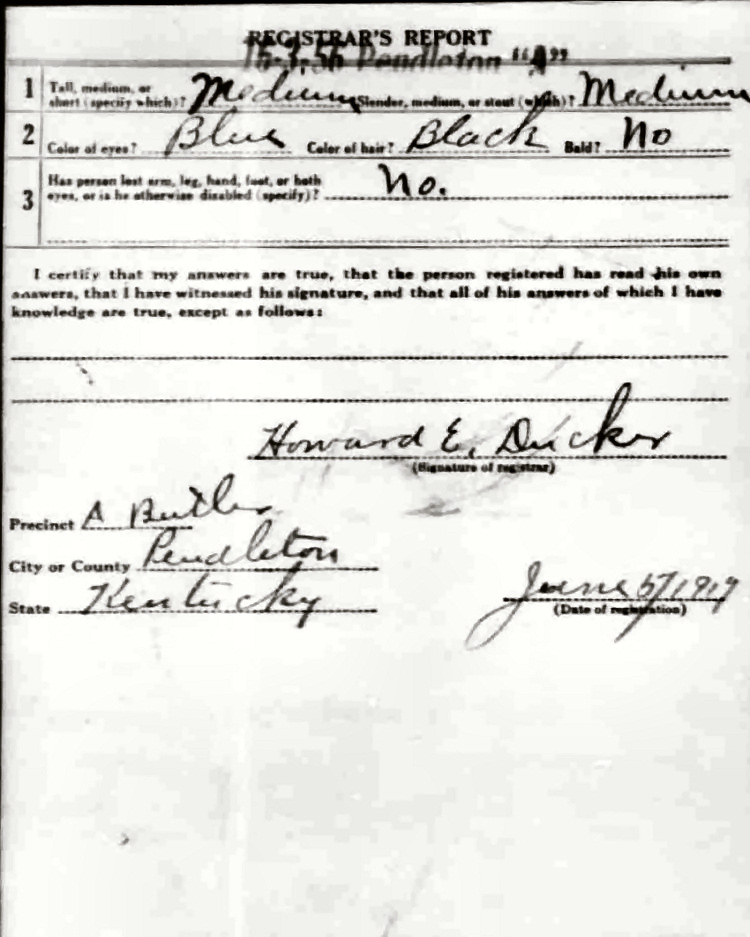 REGISTRAR'S REPORT
Pendleton "A"
1 Tall, medium, or short (specify which)? Medium Slender, medium, or stout (which)? Medium
2 Color of eyes? Blue Color of hair? Black Bald? No
3 Has person lost arm, leg, hand, foot, or both
eyes, or is he otherwise disabled (specify)? No.
I certify that my answers are true, that the person registered has read his own
answers, that I have witnessed his signature, and that all of his answers of which I have
knowledge are true, except as follows:
Howard E. Ducker
(Signature of registrar)
Precinct A Butler
City or County Pendleton
State Kentucky
June 5/1917
(Date of registration)